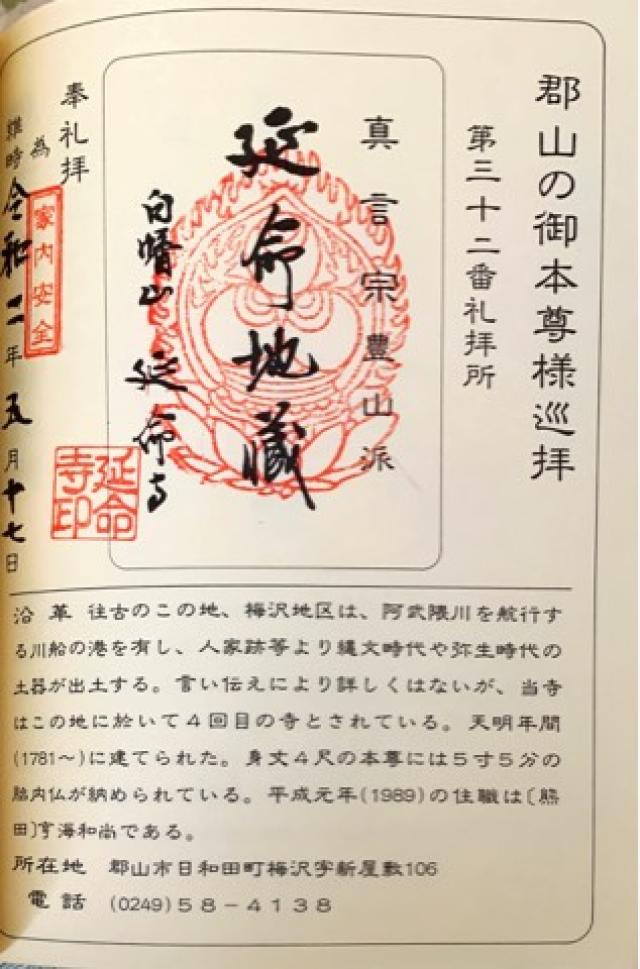 郡山の御本尊様巡拝
第三十二番礼拝所
真言宗豊山派
延命地蔵
白幡山 延命寺
奉礼拝
為
家内安全
維時令和二年五月十七日
延命
寺印
沿革 往古のこの地、梅沢地区は、阿武隈川を航行す
る川船の港を有し、人家跡等より縄文時代や弥生時代の
土器が出土する。言い伝えにより詳しくはないが、当寺
はこの地に於いて4回目の寺とされている。天明年間
(1781〜)に建てられた。身丈4尺の本尊には5寸5分の
胎内仏が納められている。平成元年(1989)の住職は〔熊
田〕亨海和尚である。
所在地 郡山市日和田町梅沢字新屋敷106
電話 (0249)58-4138